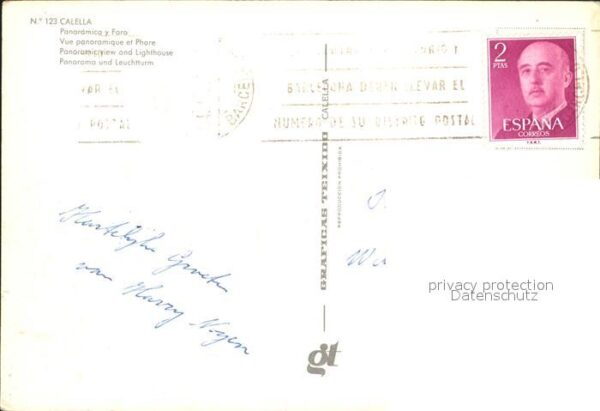 N.º 123 CALELLA
Panorámica y Faro
Vue panoramique et Phare
Panoramic view and Lighthouse
Panorama und Leuchtturm
VAR EL
POSTAL
BARCELONA DEBEN LLEVAR EL
NUMERO DE SU DISTRITO POSTAL
2
PTAS
ESPAÑA
CORREOS
F.N.M.T.
GRAFICAS TEIXIDO CALELLA
REPRODUCCION PROHIBIDA
Hartelijke Groeten
van Harry
We
privacy protection
Datenschutz
gt